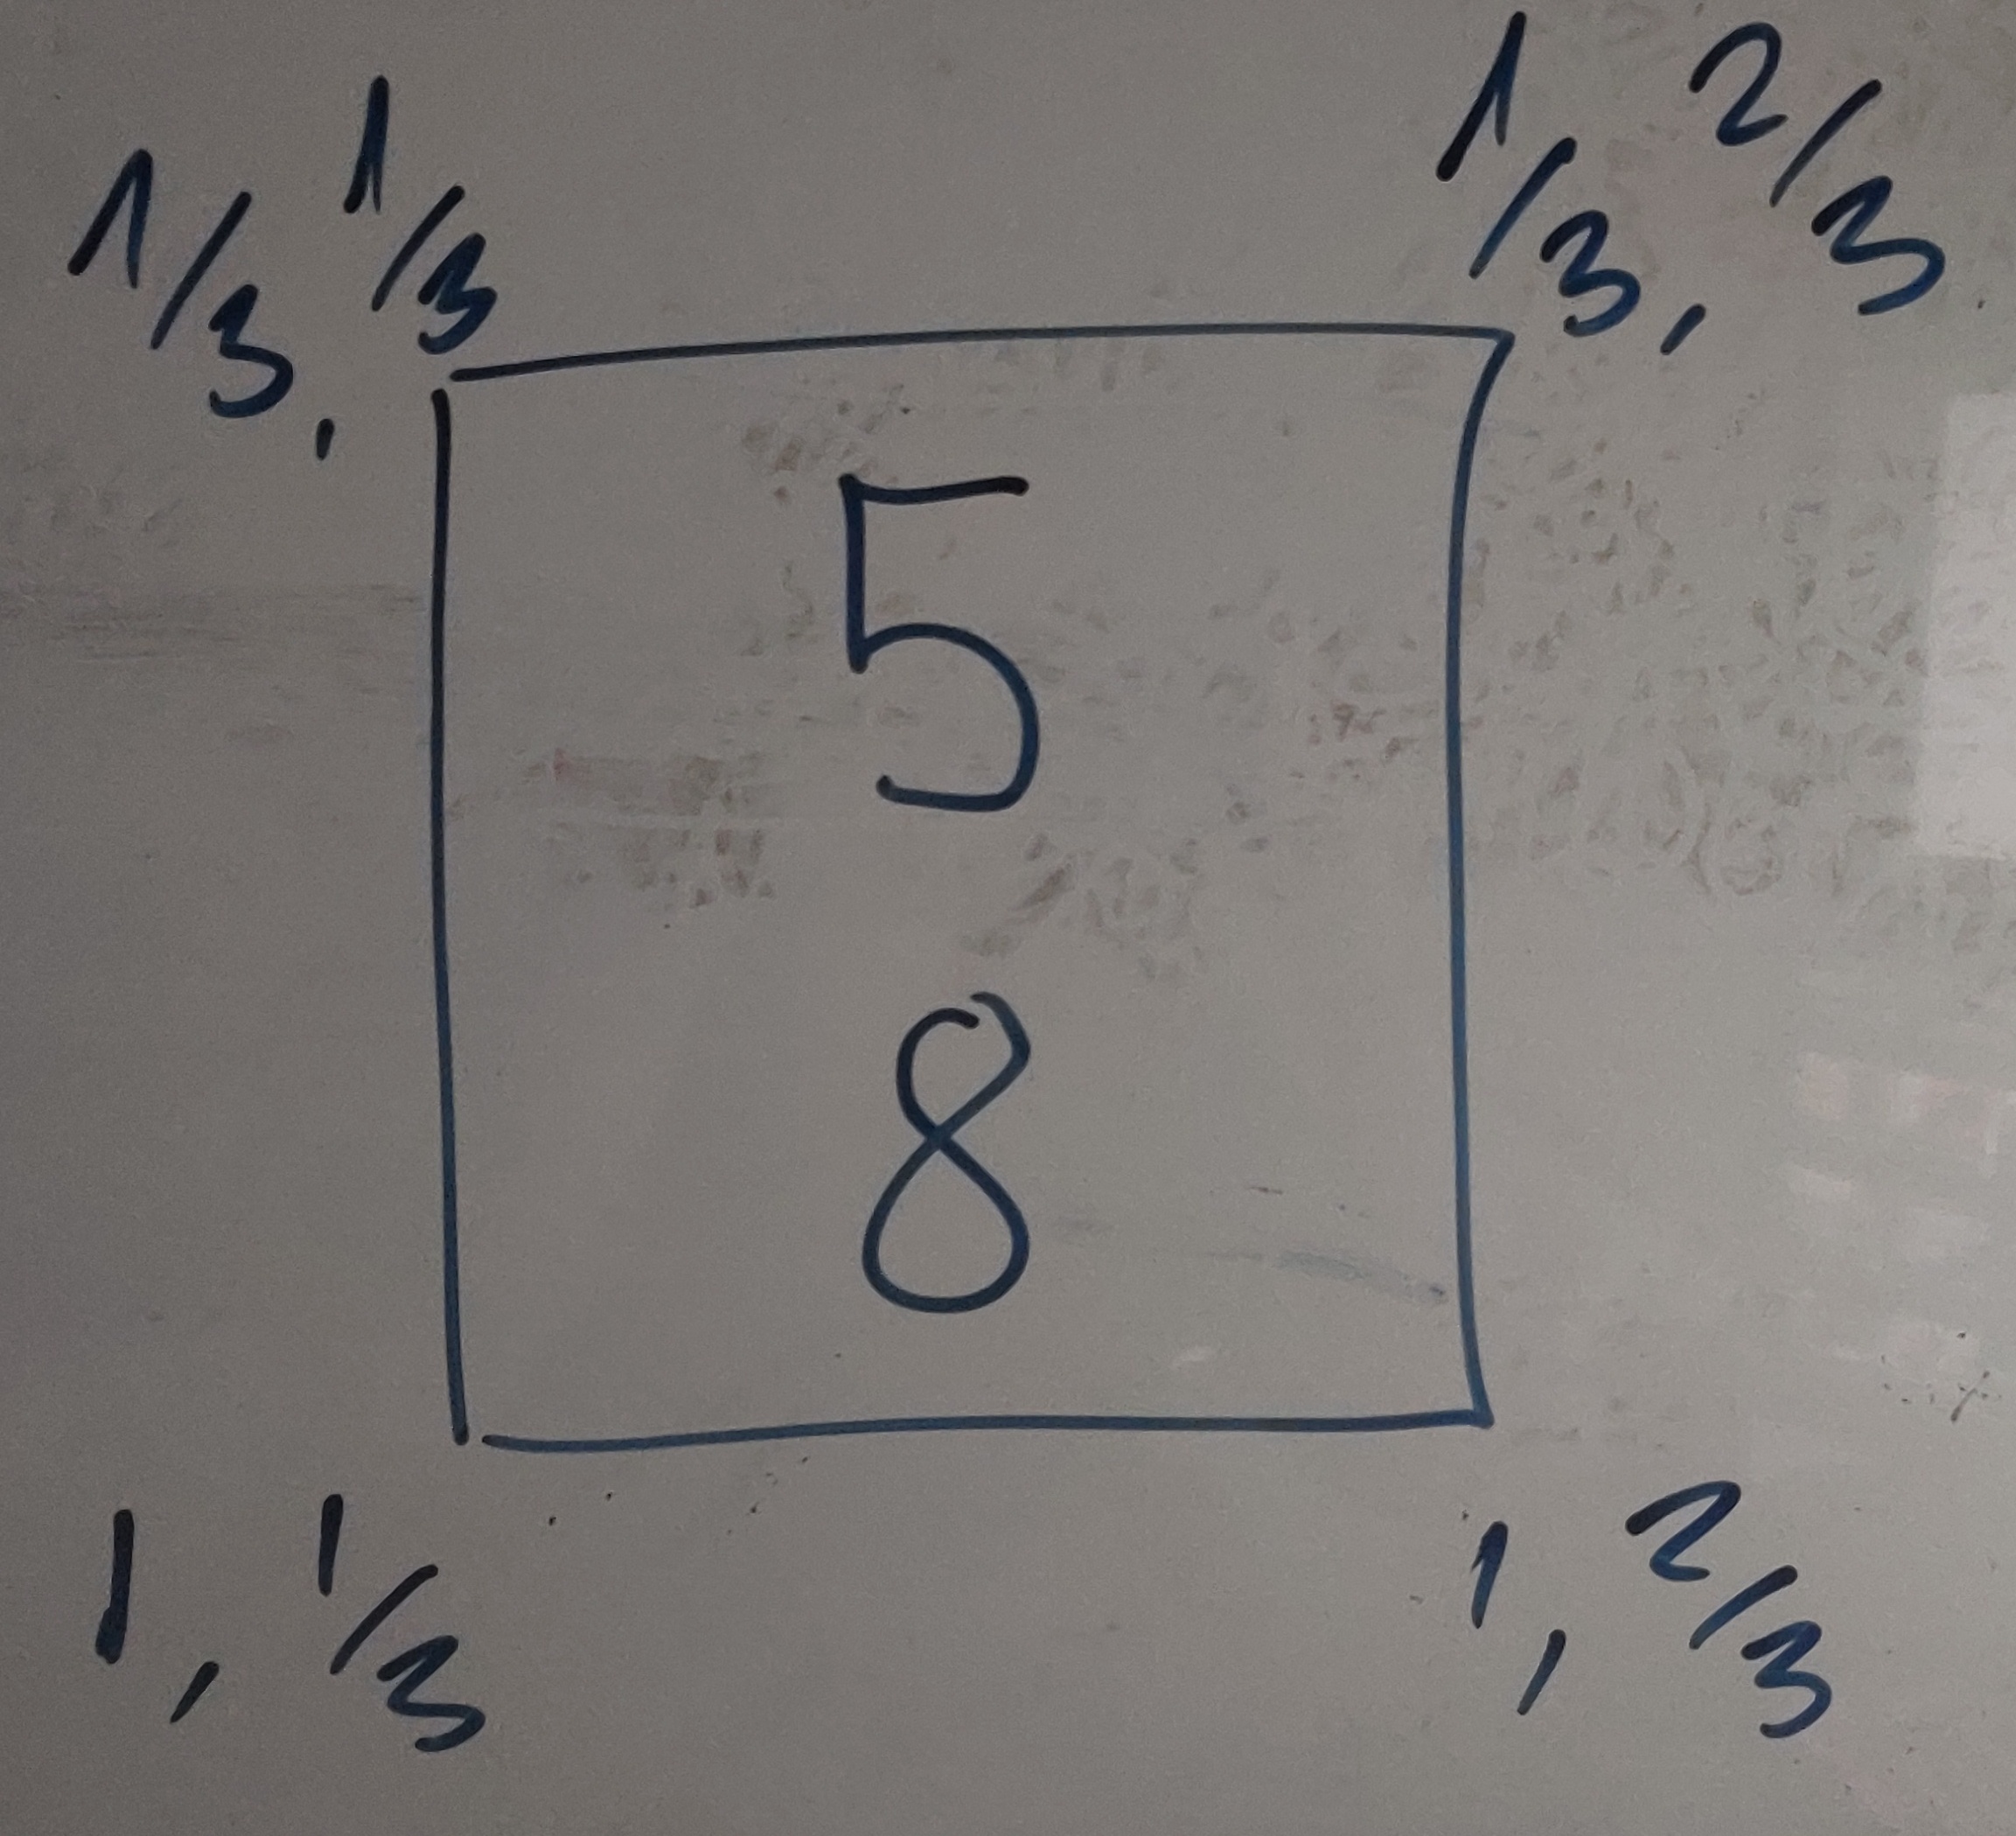 1/3, 1/3
1/3, 2/3
5
8
1, 1/3
1, 2/3